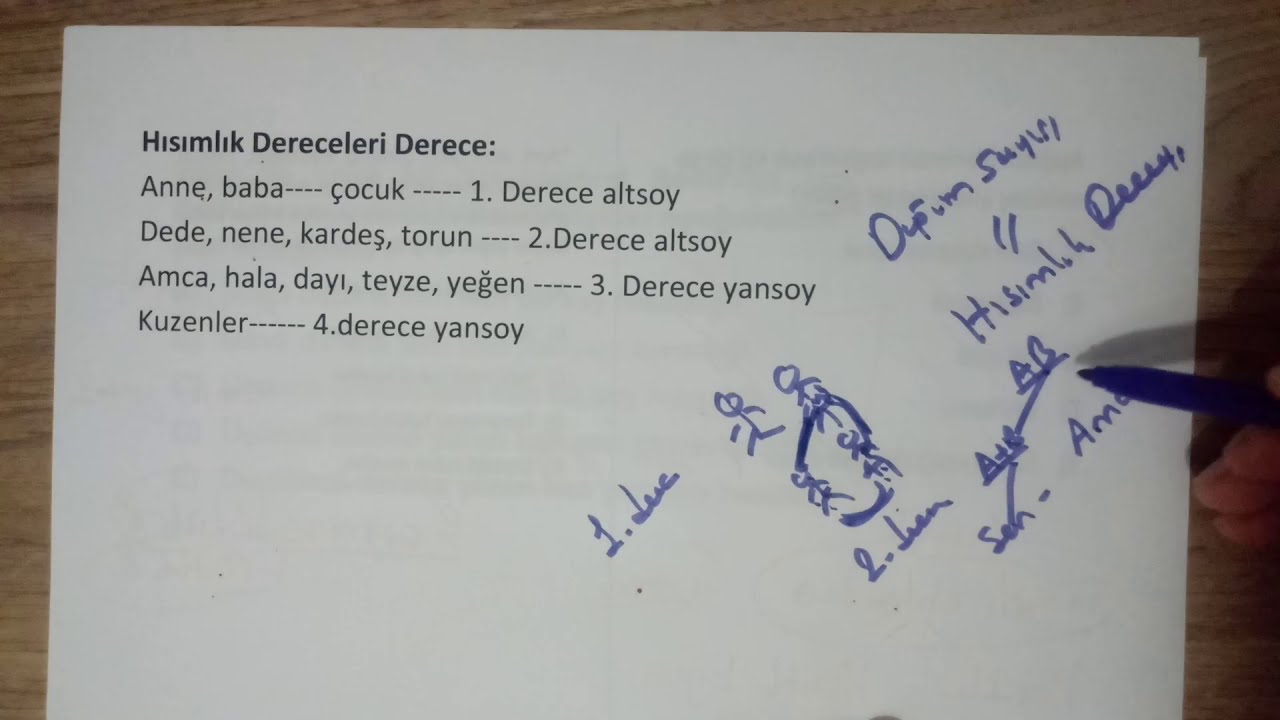 Hısımlık Dereceleri Derece:
Anne, baba---- çocuk ----- 1. Derece altsoy
Dede, nene, kardeş, torun ---- 2.Derece altsoy
Amca, hala, dayı, teyze, yeğen ----- 3. Derece yansoy
Kuzenler------ 4.derece yansoy
Düğüm Sayısı
=
Hısımlık Derecesi
AB
Am
Sen -
1. derece
2. derece